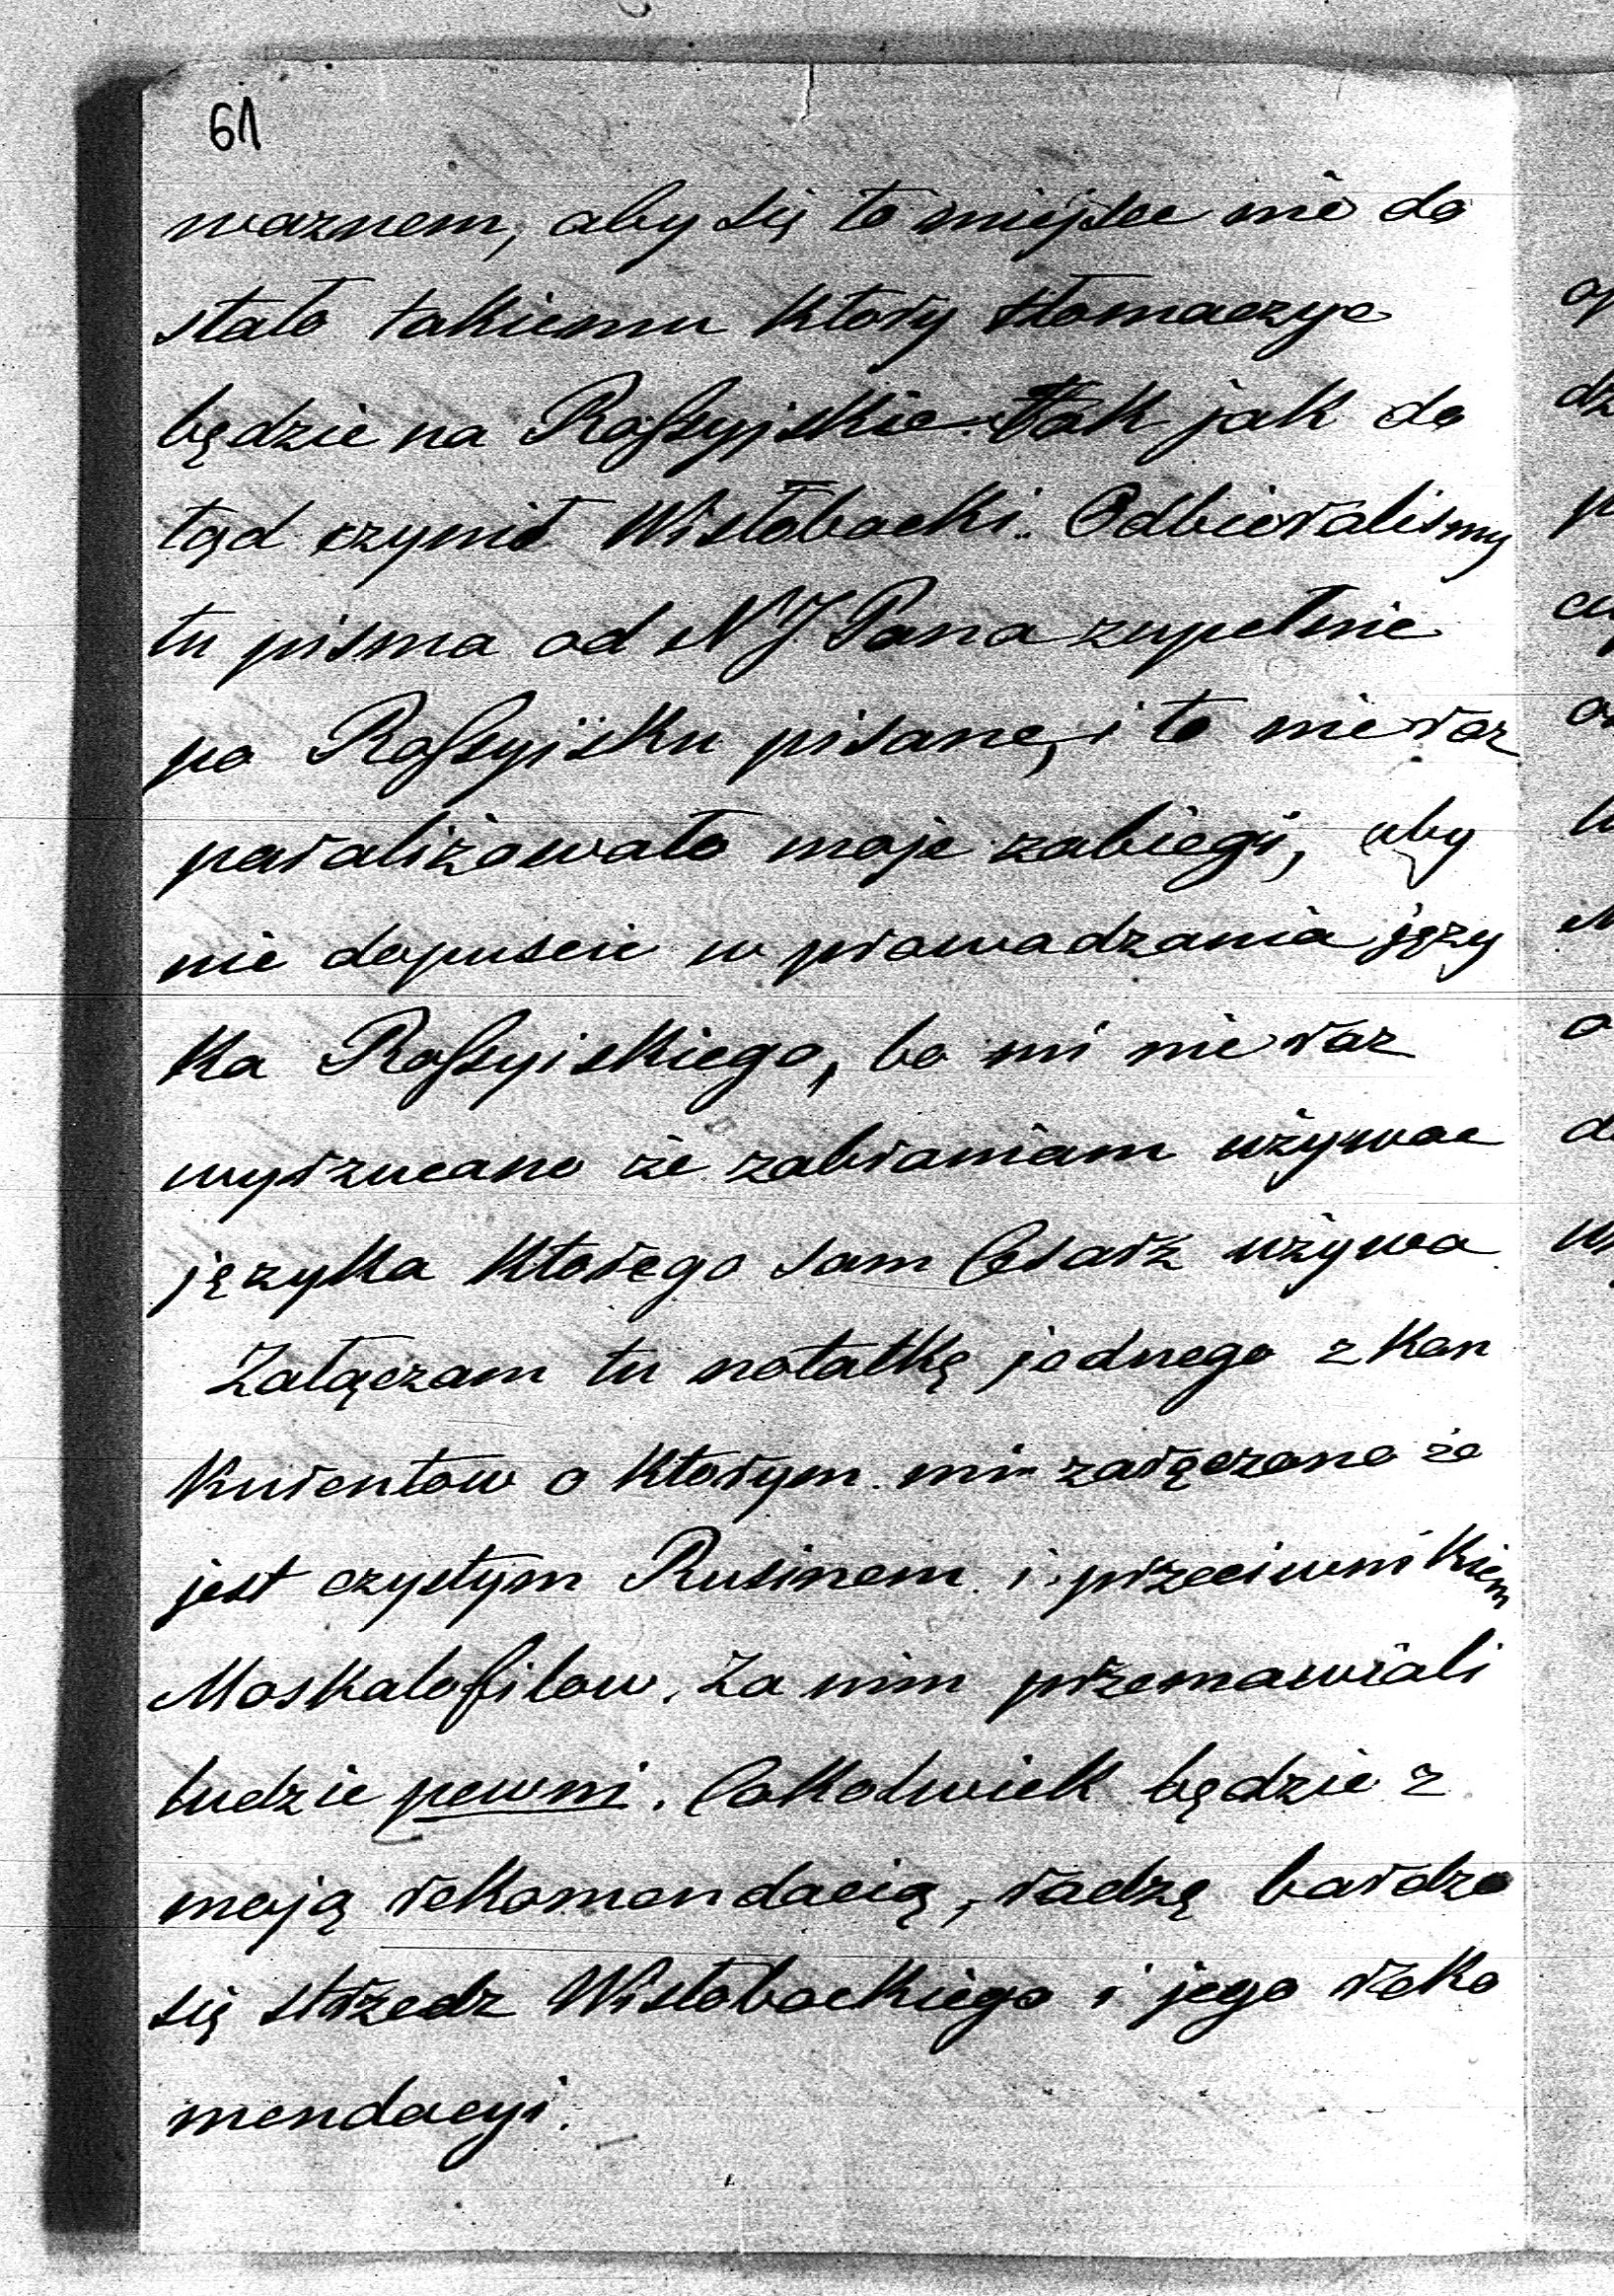 61
waznem, aby się to miejsce nie do
stało takiemu ktory tłomaczyc
będzie na Rossyjskie tak jak do
tąd czynił Wisłobocki. Odbieralismy
tu pisma od NJ Pana zupełnie
po Rossyjsku pisane, i to nie raz
paraliżowało moje zabiegi, aby
nie dopuscic w prowadzania języ
ka Rossyiskiego, bo mi nie raz
wyrzucano że zabraniam używac
języka ktorego sam Cesarz używa
Załączam tu notatkę jednego z kon
kurentow o ktorym mi zaręczono że
jest czystym Rusinem i przeciwnikiem
Moskalofilow. Za nim przemawiali
ludzie pewni. Cokolwiek będzie z
moją rekomendacią, radzę bardzo
się strzedz Wisłobockiego i jego reko
mendacyi.